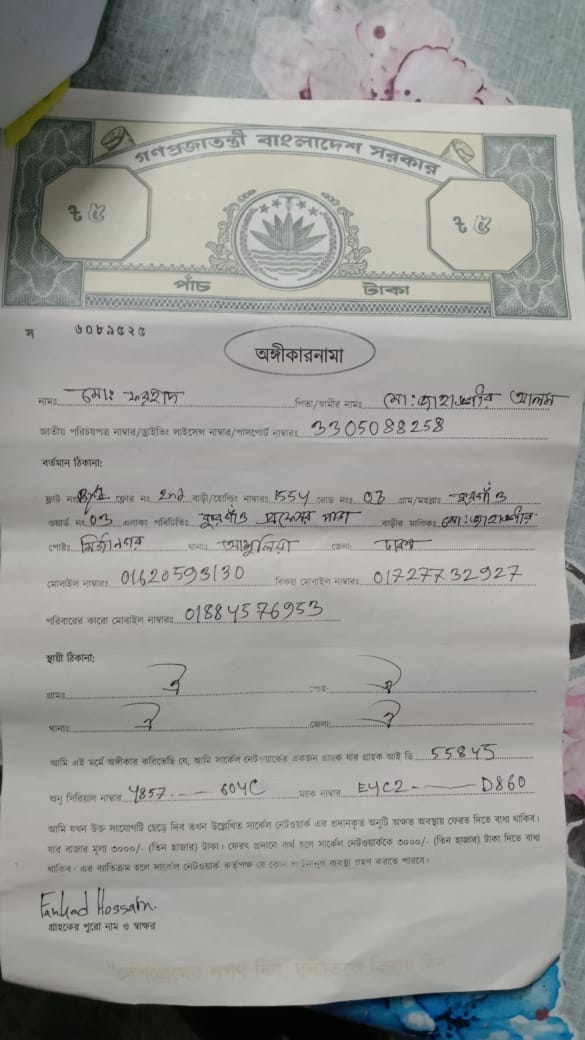 গণপ্রজাতন্ত্রী বাংলাদেশ সরকার
৳ ৫ ৳ ৫
পাঁচ টাকা
স ৬০৮৯৫২৫
অঙ্গীকারনামা
নামঃ মোঃ ফরহাদ পিতা/স্বামীর নামঃ মো: জাহাঙ্গীর আলম
জাতীয় পরিচয়পত্র নাম্বার/ড্রাইভিং লাইসেন্স নাম্বার/পাসপোর্ট নাম্বারঃ 3305088258
বর্তমান ঠিকানা:
ফ্ল্যাট নংঃ ফ্লোর নংঃ 2nd বাড়ী/হোল্ডিং নাম্বারঃ 1554 রোড নংঃ 03 গ্রাম/মহল্লাঃ কুরগাঁও
ওয়ার্ড নংঃ 03 এলাকা পরিচিতিঃ কুরগাঁও প্রফেসর পাড়া বাড়ীর মালিকঃ মো: জাহাঙ্গীর
পোষ্টঃ মির্জানগর থানাঃ আশুলিয়া জেলা: ঢাকা
মোবাইল নাম্বারঃ 01620593130 বিকল্প মোবাইল নাম্বারঃ 01727732927
পরিবারের কারো মোবাইল নাম্বারঃ 01884576953
স্থায়ী ঠিকানা:
গ্রামঃ ঐ পোষ্ট: ঐ
থানাঃ ঐ জেলা: ঐ
আমি এই মর্মে অঙ্গীকার করিতেছি যে, আমি সার্কেল নেটওয়ার্কের একজন গ্রাহক যার গ্রাহক আই ডি 55845
অনু সিরিয়াল নাম্বার 4857 --- 604C ম্যাক নাম্বার E4C2 --- D860
আমি যখন উক্ত সংযোগটি ছেড়ে দিব তখন উল্লেখিত সার্কেল নেটওয়ার্ক এর প্রদানকৃত অনুটি অক্ষত অবস্থায় ফেরত দিতে বাধ্য থাকিব।
যার বাজার মূল্য ৩০০০/- (তিন হাজার) টাকা। ফেরৎ প্রদানে ব্যর্থ হলে সার্কেল নেটওয়ার্ককে ৩০০০/- (তিন হাজার) টাকা দিতে বাধ্য
থাকিব। এর ব্যতিক্রম হলে সার্কেল নেটওয়ার্ক কর্তৃপক্ষ যে কোন আইনানুগ ব্যবস্থা গ্রহণ করতে পারবে।
Farhad Hossain.
গ্রাহকের পুরো নাম ও স্বাক্ষর
"দেশপ্রেমের শপথ নিন, দুর্নীতিকে বিদায় দিন"